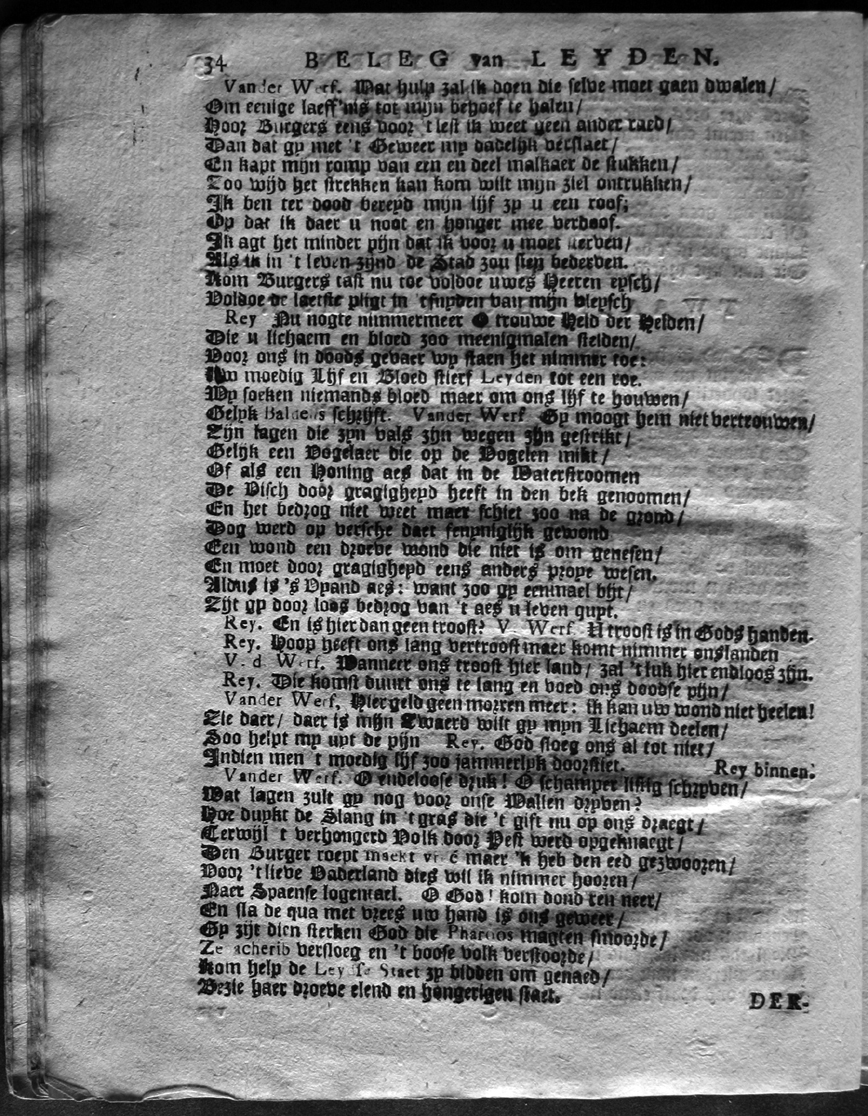 34 BELEG van LEYDEN.
Vander Werf. Wat hulp zal ik doen die selve moet gaen dwalen/
Om eenige laeff'nis tot mijn behoef te halen/
Hoor Burgers eens voor 't lest ik weet geen ander raed/
Dan dat gy met 't Geweer my dadelijk verslaet/
En kapt mijn romp van een en deel malkaer de stukken/
Zoo wijd het strekken kan kom wilt mijn ziel ontrukken/
Ik ben ter dood bereyd mijn lijf zy u een roof;
Op dat ik daer u noot en honger mee verdoof.
Ik agt het minder pijn dat ik voor u moet sterven/
Als ik in 't leven zijnd de Stad zou sien bederven.
Kom Burgers tast nu toe voldoe uwes Heeren eysch/
Voldoe de laetste pligt in 't snyden van mijn vleysch
Rey Nu nogte nimmermeer O trouwe Held der Helden/
Die u lichaem en bloed zoo meenigmalen stelden/
Voor ons in doods gevaer wy staen het nimmer toe:
Uw moedig Lijf en Bloed stierf Leyden tot een roe.
Wy soeken niemands bloed maer om ons lijf te houwen/
Gelyk Baldeus schrijft. Vander Werf Gy moogt hem niet vertrouwen/
Zijn lagen die zyn vals zijn wegen zijn gestrikt/
Gelijk een Vogelaer die op de Vogelen mikt/
Of als een Honing aes dat in de Waterstroomen
De Visch door gragigheyd heeft in den bek genoomen/
En het bedrog niet weet maer schiet zoo na de grond/
Dog werd op versche daet fenyniglijk gewond
Een wond een droeve wond die niet is om genesen/
En moet door gragigheyd eens anders proye wesen.
Aldus is 's Vyand aes: want zoo gy eenmael bijt/
Zijt gy door loos bedrog van 't aes u leven quyt.
Rey. En is hier dan geen troost? V. Werf U troost is in Gods handen.
Rey. Hoop heeft ons lang vertroost maer komt nimmer ons landen
V. d. Werf. Wanneer ons troost hier land/ zal 't luk hier endloos zijn.
Rey. Die komst duurt ons te lang en voed ons doodse pijn/
Vander Werf, Hier geld geen morren meer: ik kan uw wond niet heelen!
Zie daer/ daer is mijn Zwaerd wilt gy myn Lichaem deelen/
Soo helpt my uyt de pijn Rey. God sloeg ons al tot niet/
Indien men 't moedig lijf zoo jammerlyk doorstiet. Rey binnen.
Vander Werf. O endeloose druk! O schamper listig schryven/
Wat lagen zult gy nog voor onse Wallen dryven?
Hoe duykt de Slang in 't gras die 't gift nu op ons draegt/
Terwijl 't verhongerd Volk door Pest werd opgeknaegt/
Den Burger roept maekt vreê maer 'k heb den eed gezwooren/
Voor 't lieve Vaderland dies wil ik nimmer hooren/
Naer Spaense logentael. O God! kom dond'ren neer/
En sla de qua met vrees uw hand is ons geweer/
Gy zijt dien sterken God die Pharoos magten smoorde/
Zenacherib versloeg en 't boose volk verstoorde/
Kom help de Leydse Staet zy bidden om genaed/
Bezie haer droeve elend en hongerigen staet.
DER-